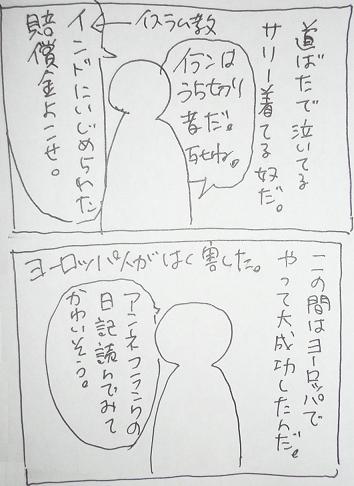 道ばたで泣いてる
サリー着てる奴だ。
イランは
うらせつり
者だ。
ちせね。
イスラム教
インドにいじめられた
賠償金よこせ。
この間はヨーロッパで
やって大成功したんだ。
ヨーロッパ人がはく害した。
アンネフランクの
日記読んでみて
かわいそう。